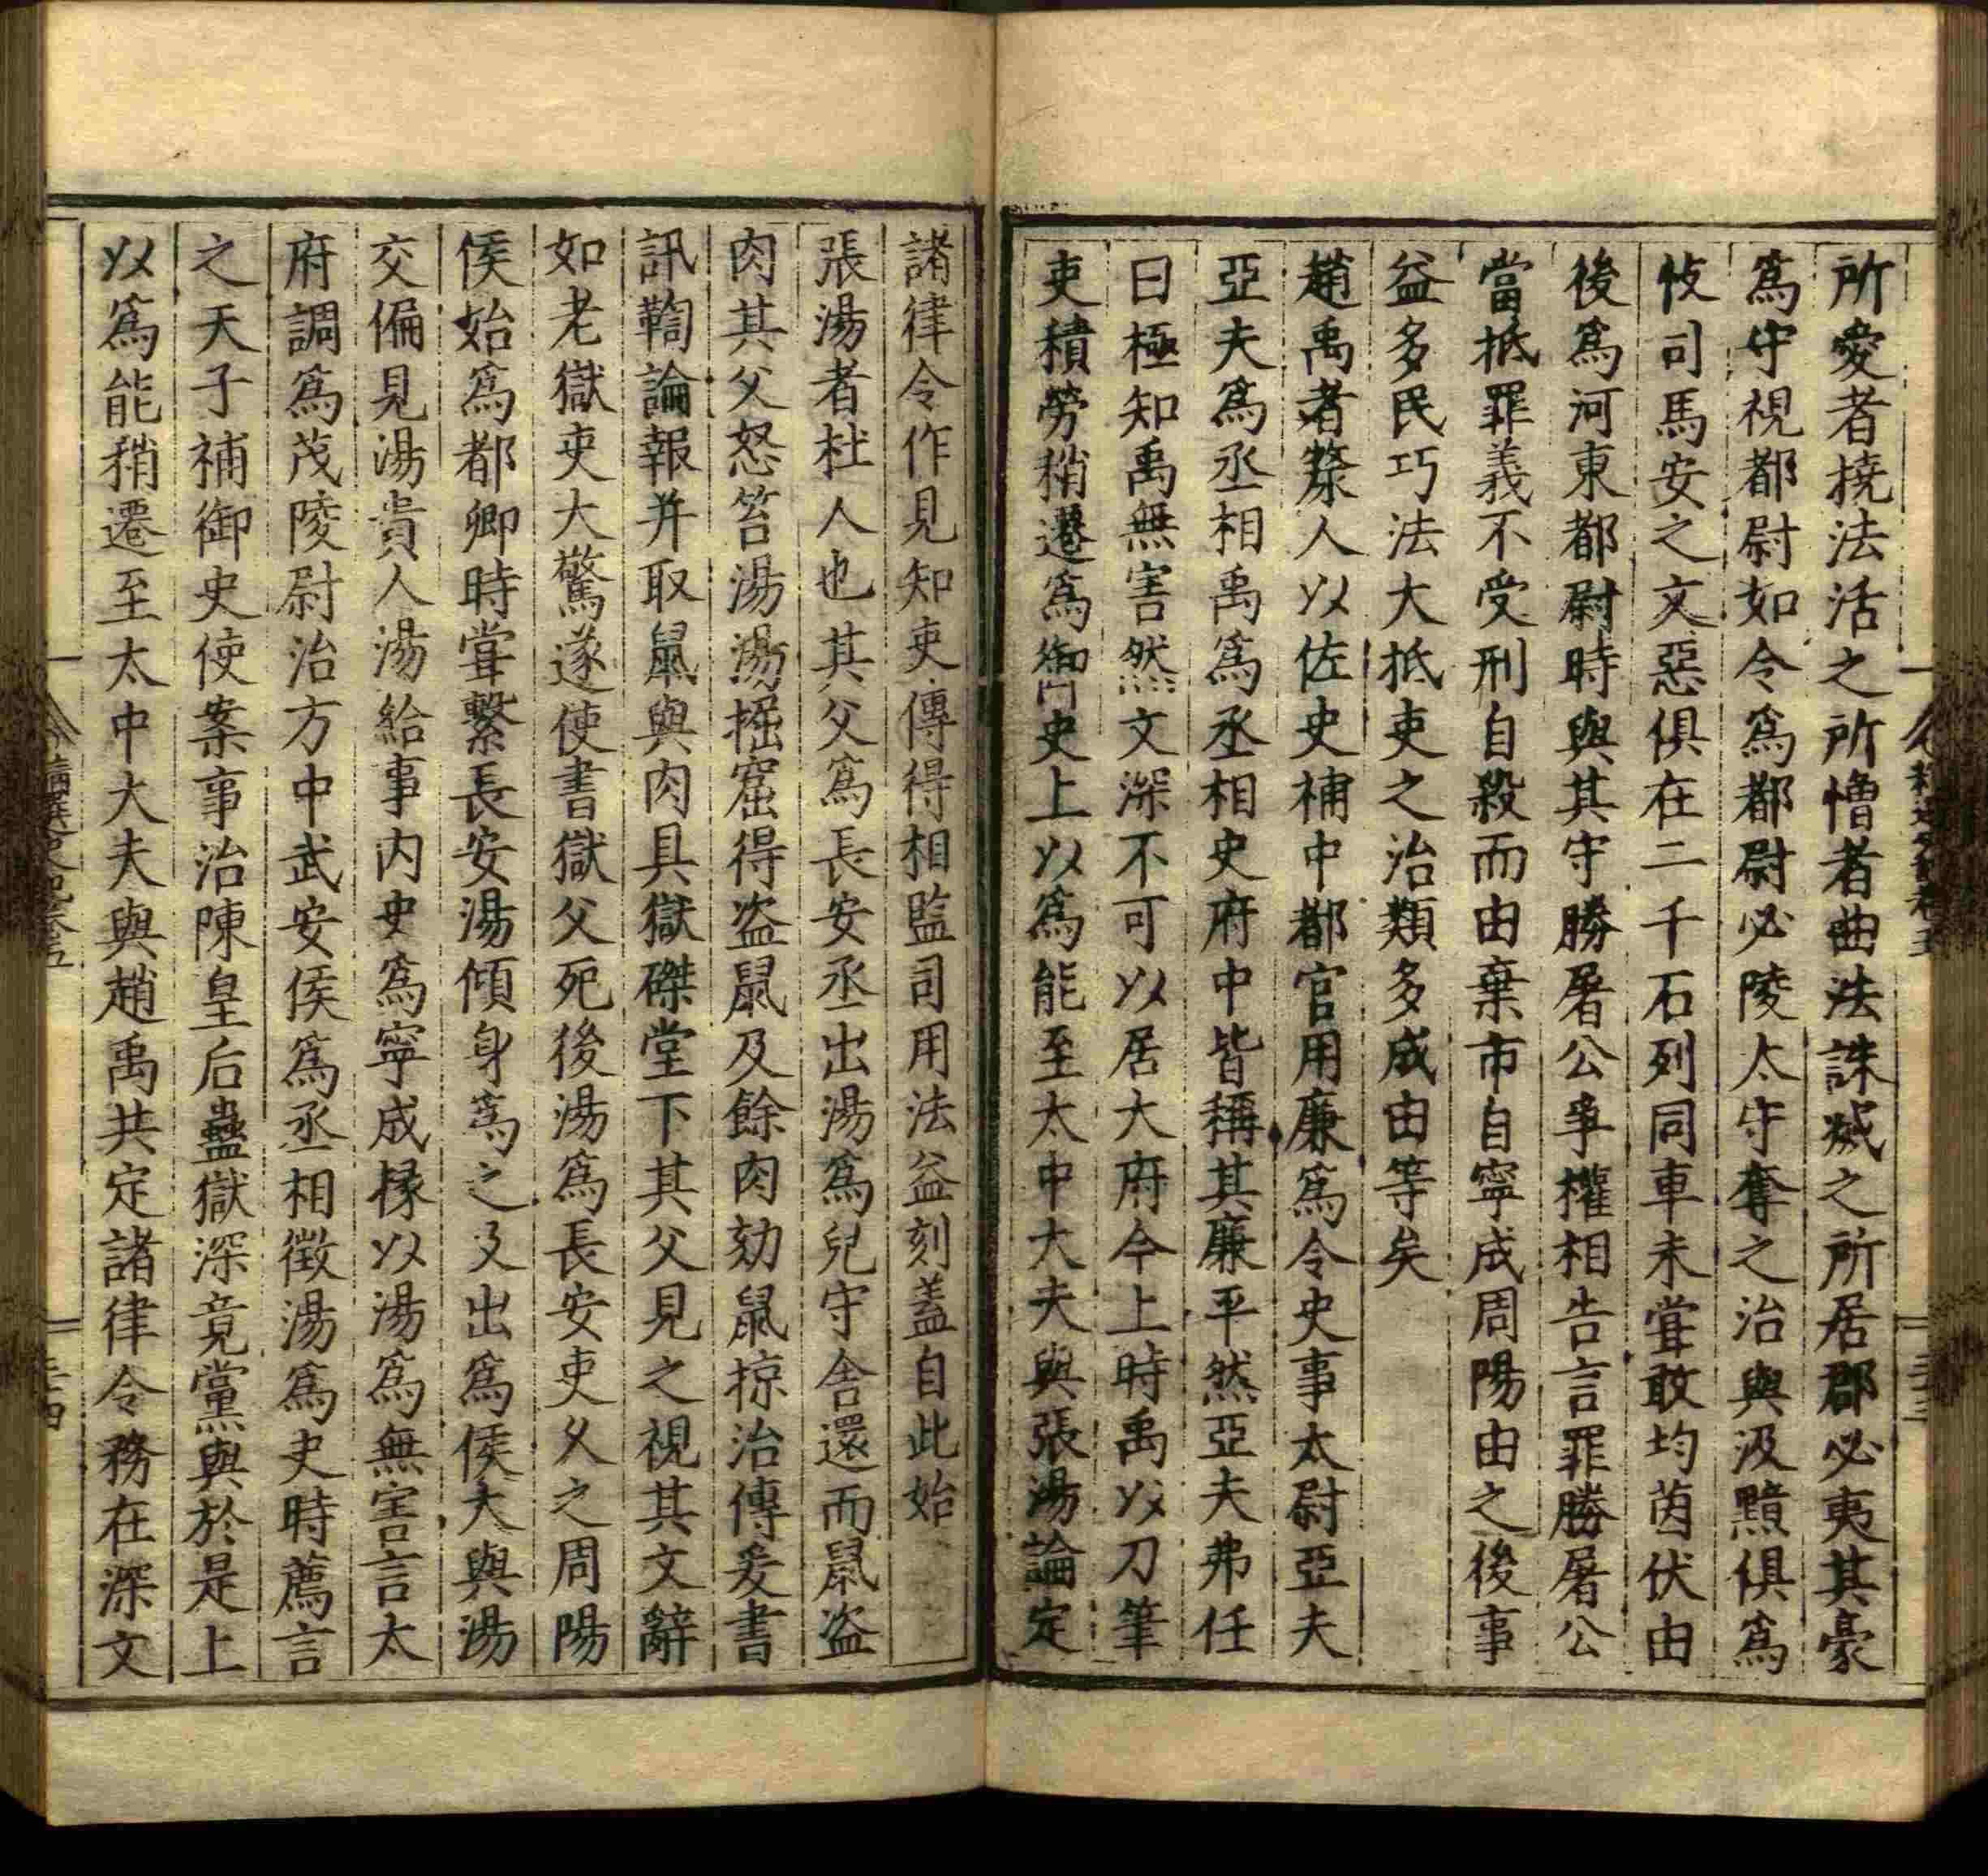 所愛者撓法活之所憎者曲法誅滅之所居郡必夷其豪
爲守視都尉如令爲都尉必陵太守奪之治與汲黯俱爲
忮司馬安之文惡俱在二千石列同車未甞敢均茵伏由
後爲河東都尉時與其守勝屠公爭權相告言罪勝屠公
當抵罪義不受刑自殺而由棄市自寧成周陽由之後事
益多民巧法大抵吏之治類多成由等矣
趙禹者斄人以佐史補中都官用廉爲令史事太尉亞夫
亞夫爲丞相禹爲丞相史府中皆稱其廉平然亞夫弗任
曰極知禹無害然文深不可以居大府今上時禹以刀筆
吏積勞稍遷爲御史上以爲能至太中大夫與張湯論定
諸律令作見知吏傳得相監司用法益刻蓋自此始
張湯者杜人也其父爲長安丞出湯爲兒守舍還而鼠盜
肉其父怒笞湯湯掘窟得盜鼠及餘肉劾鼠掠治傳爰書
訊鞫論報并取鼠與肉具獄磔堂下其父見之視其文辭
如老獄吏大驚遂使書獄父死後湯爲長安吏久之周陽
侯始爲都卿時甞繫長安湯傾身爲之及出爲侯大與湯
交偏見湯貴人湯給事內史爲寧成掾以湯爲無害言太
府調爲茂陵尉治方中武安侯爲丞相徵湯爲史時薦言
之天子補御史使案事治陳皇后蠱獄深竟黨與於是上
以爲能稍遷至太中大夫與趙禹共定諸律令務在深文